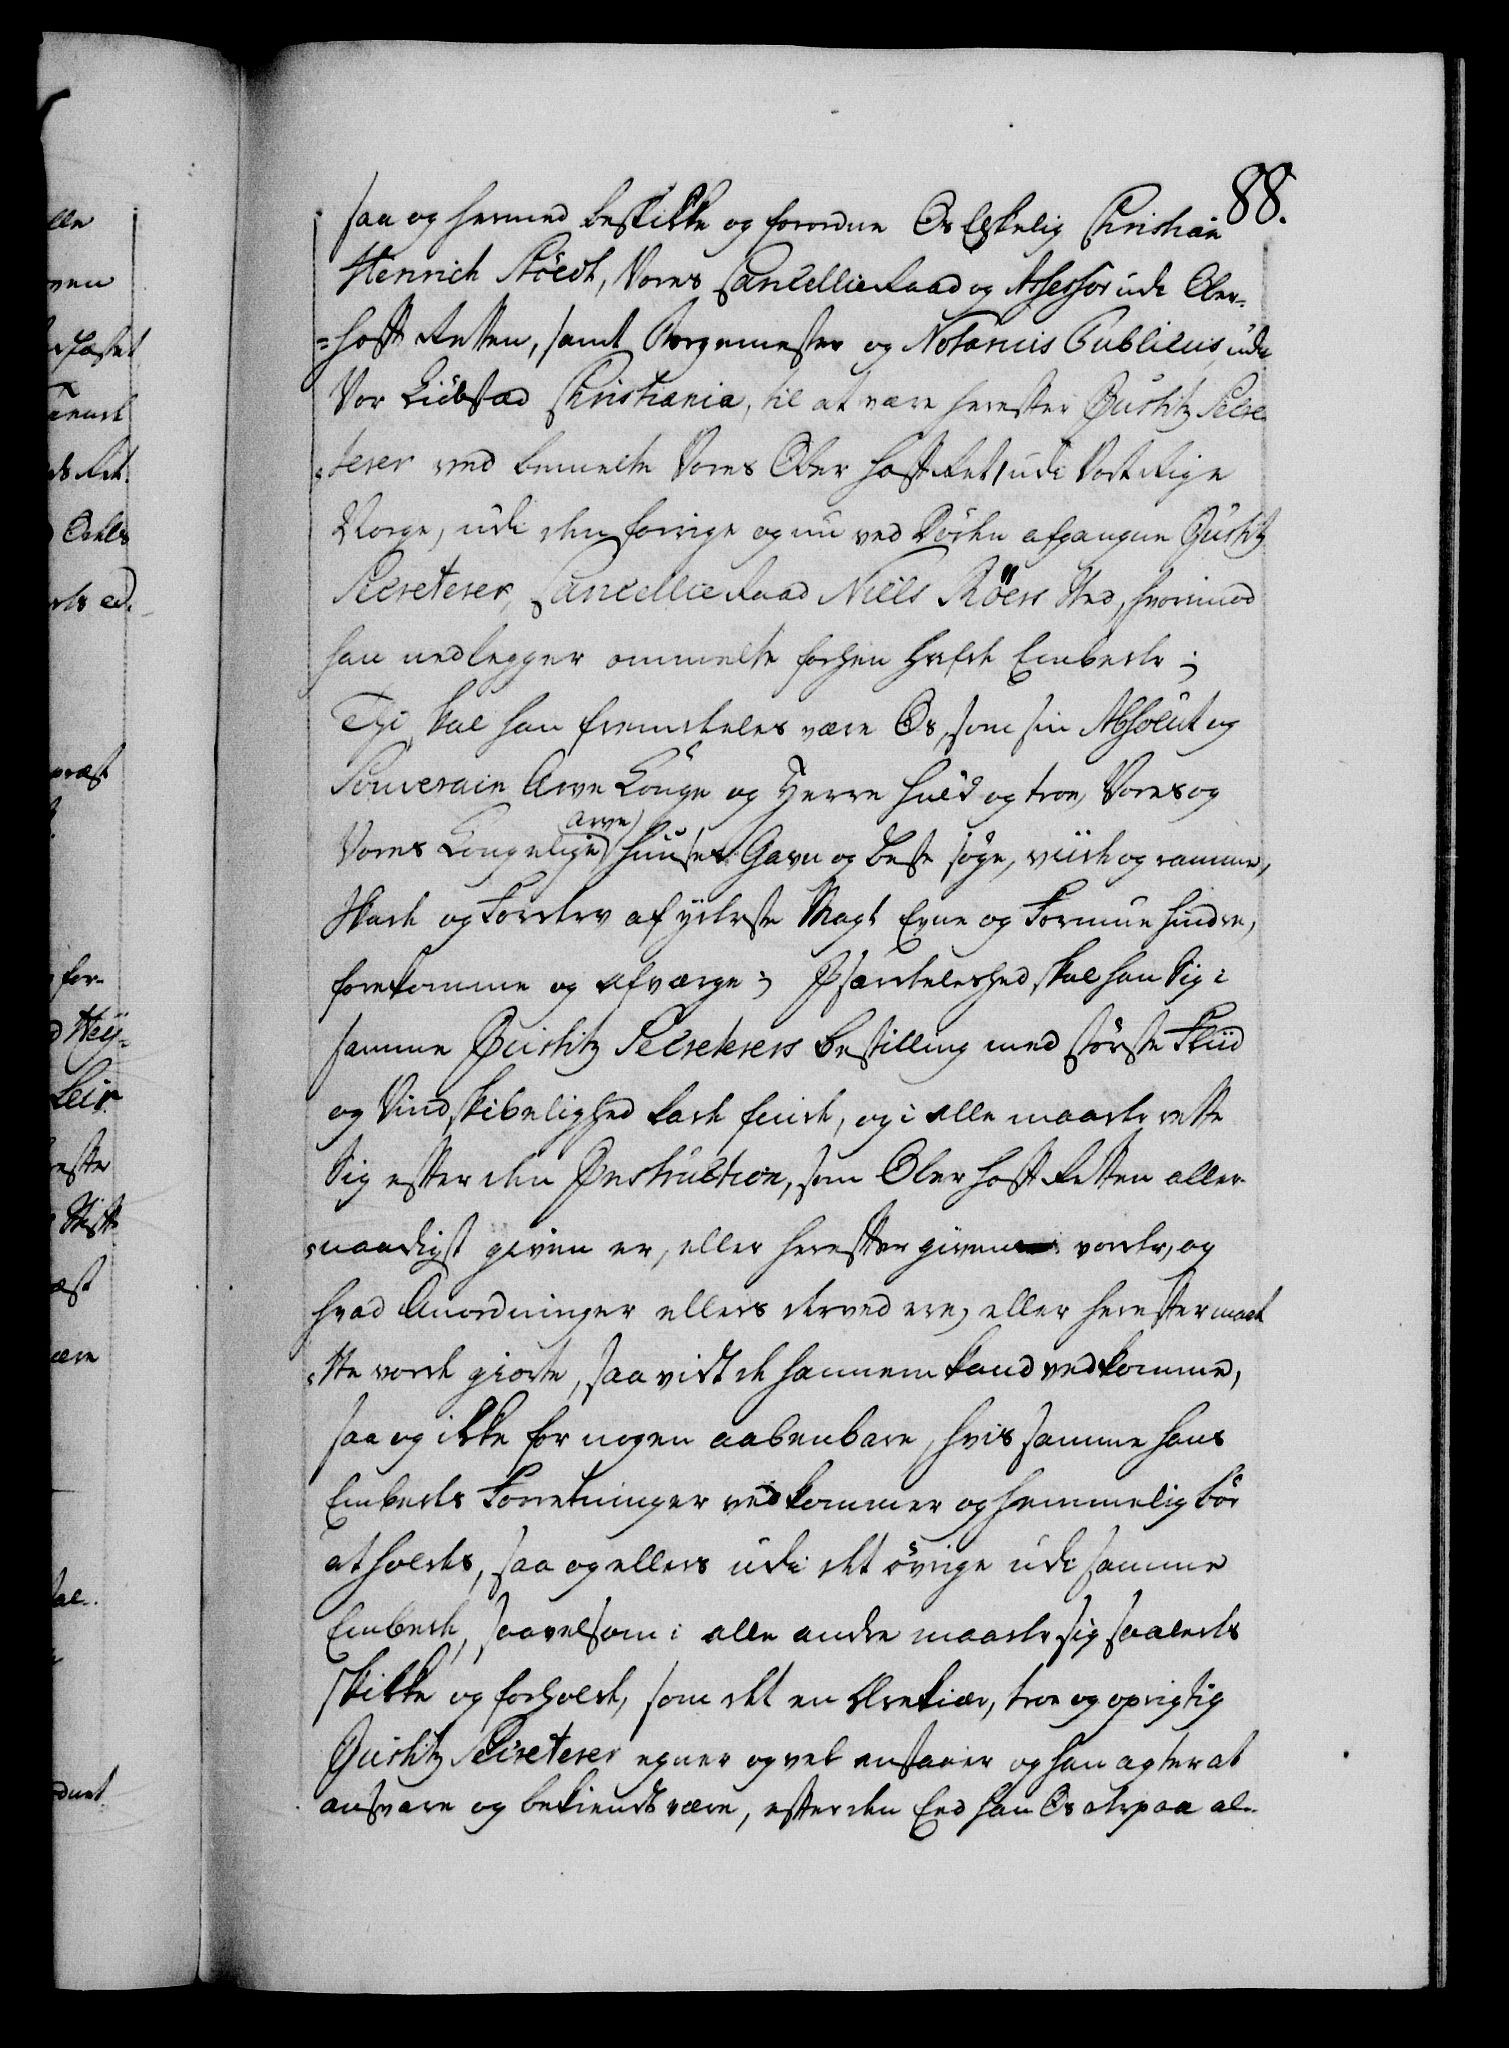 88.
saa og hermed beskikke og forordne Os Elskelig Christian
Henrich Stöcht, Vores Cancellie Raad og Assessor ude Ober¬
=hoff Retten, samt Borgemester og Notarius Publicus ude
Vor Kiöbstad Christiania, til at være herefter Justitz Secre
terer ved bemelte Vores Ober Hoff Ret udi Vort Rige
Norge, udi den forrige og nu ved Döden afgangne Justitz
Secreterer, Cancellie Raad Niels Röers Sted, hvorimod
han nedlegger ommelte forhen hafde Embede;
Thi skal han fremdeeles være Os, som sin Absolut og
Souverain Arve Konge og Herre huld og troe, Vores og
Vores Kongelige Arve Huuses Gavn og beste söge, viide og ramme,
Skade og Forderv af yderste Magt Evne og Formue hindre,
forekomme og afværge; Jsærdeleshed skal han Sig i
samme Justitz Secreterers bestilling med störste Fliid
og Vindskibelighed lade finde, og i alle maade rette
Sig efter den Instruction, som Ober Hoff Retten aller
naadigst given er, eller herefter given vorder, og
hvad Anordninger ellers derved ere, eller herefter maat
tte vorde giorte, saa vidt de hannem kand vedkomme,
saa og ikke for nogen aabenbare, hvis samme hans
Embeds Forretninger vedkommer og hemmelig bör
at holdes, saa og ellers udi det övrige udi samme
Embede, saavelsom i alle andre maader sig saaledes
skikke og forholde, som det en Ærekiær, troe og oprigtig
Justitz Secreterer egner og vel anstaaer og han agter at
ansvare og bekiendt være, efter den Eed han Os derpaa al¬